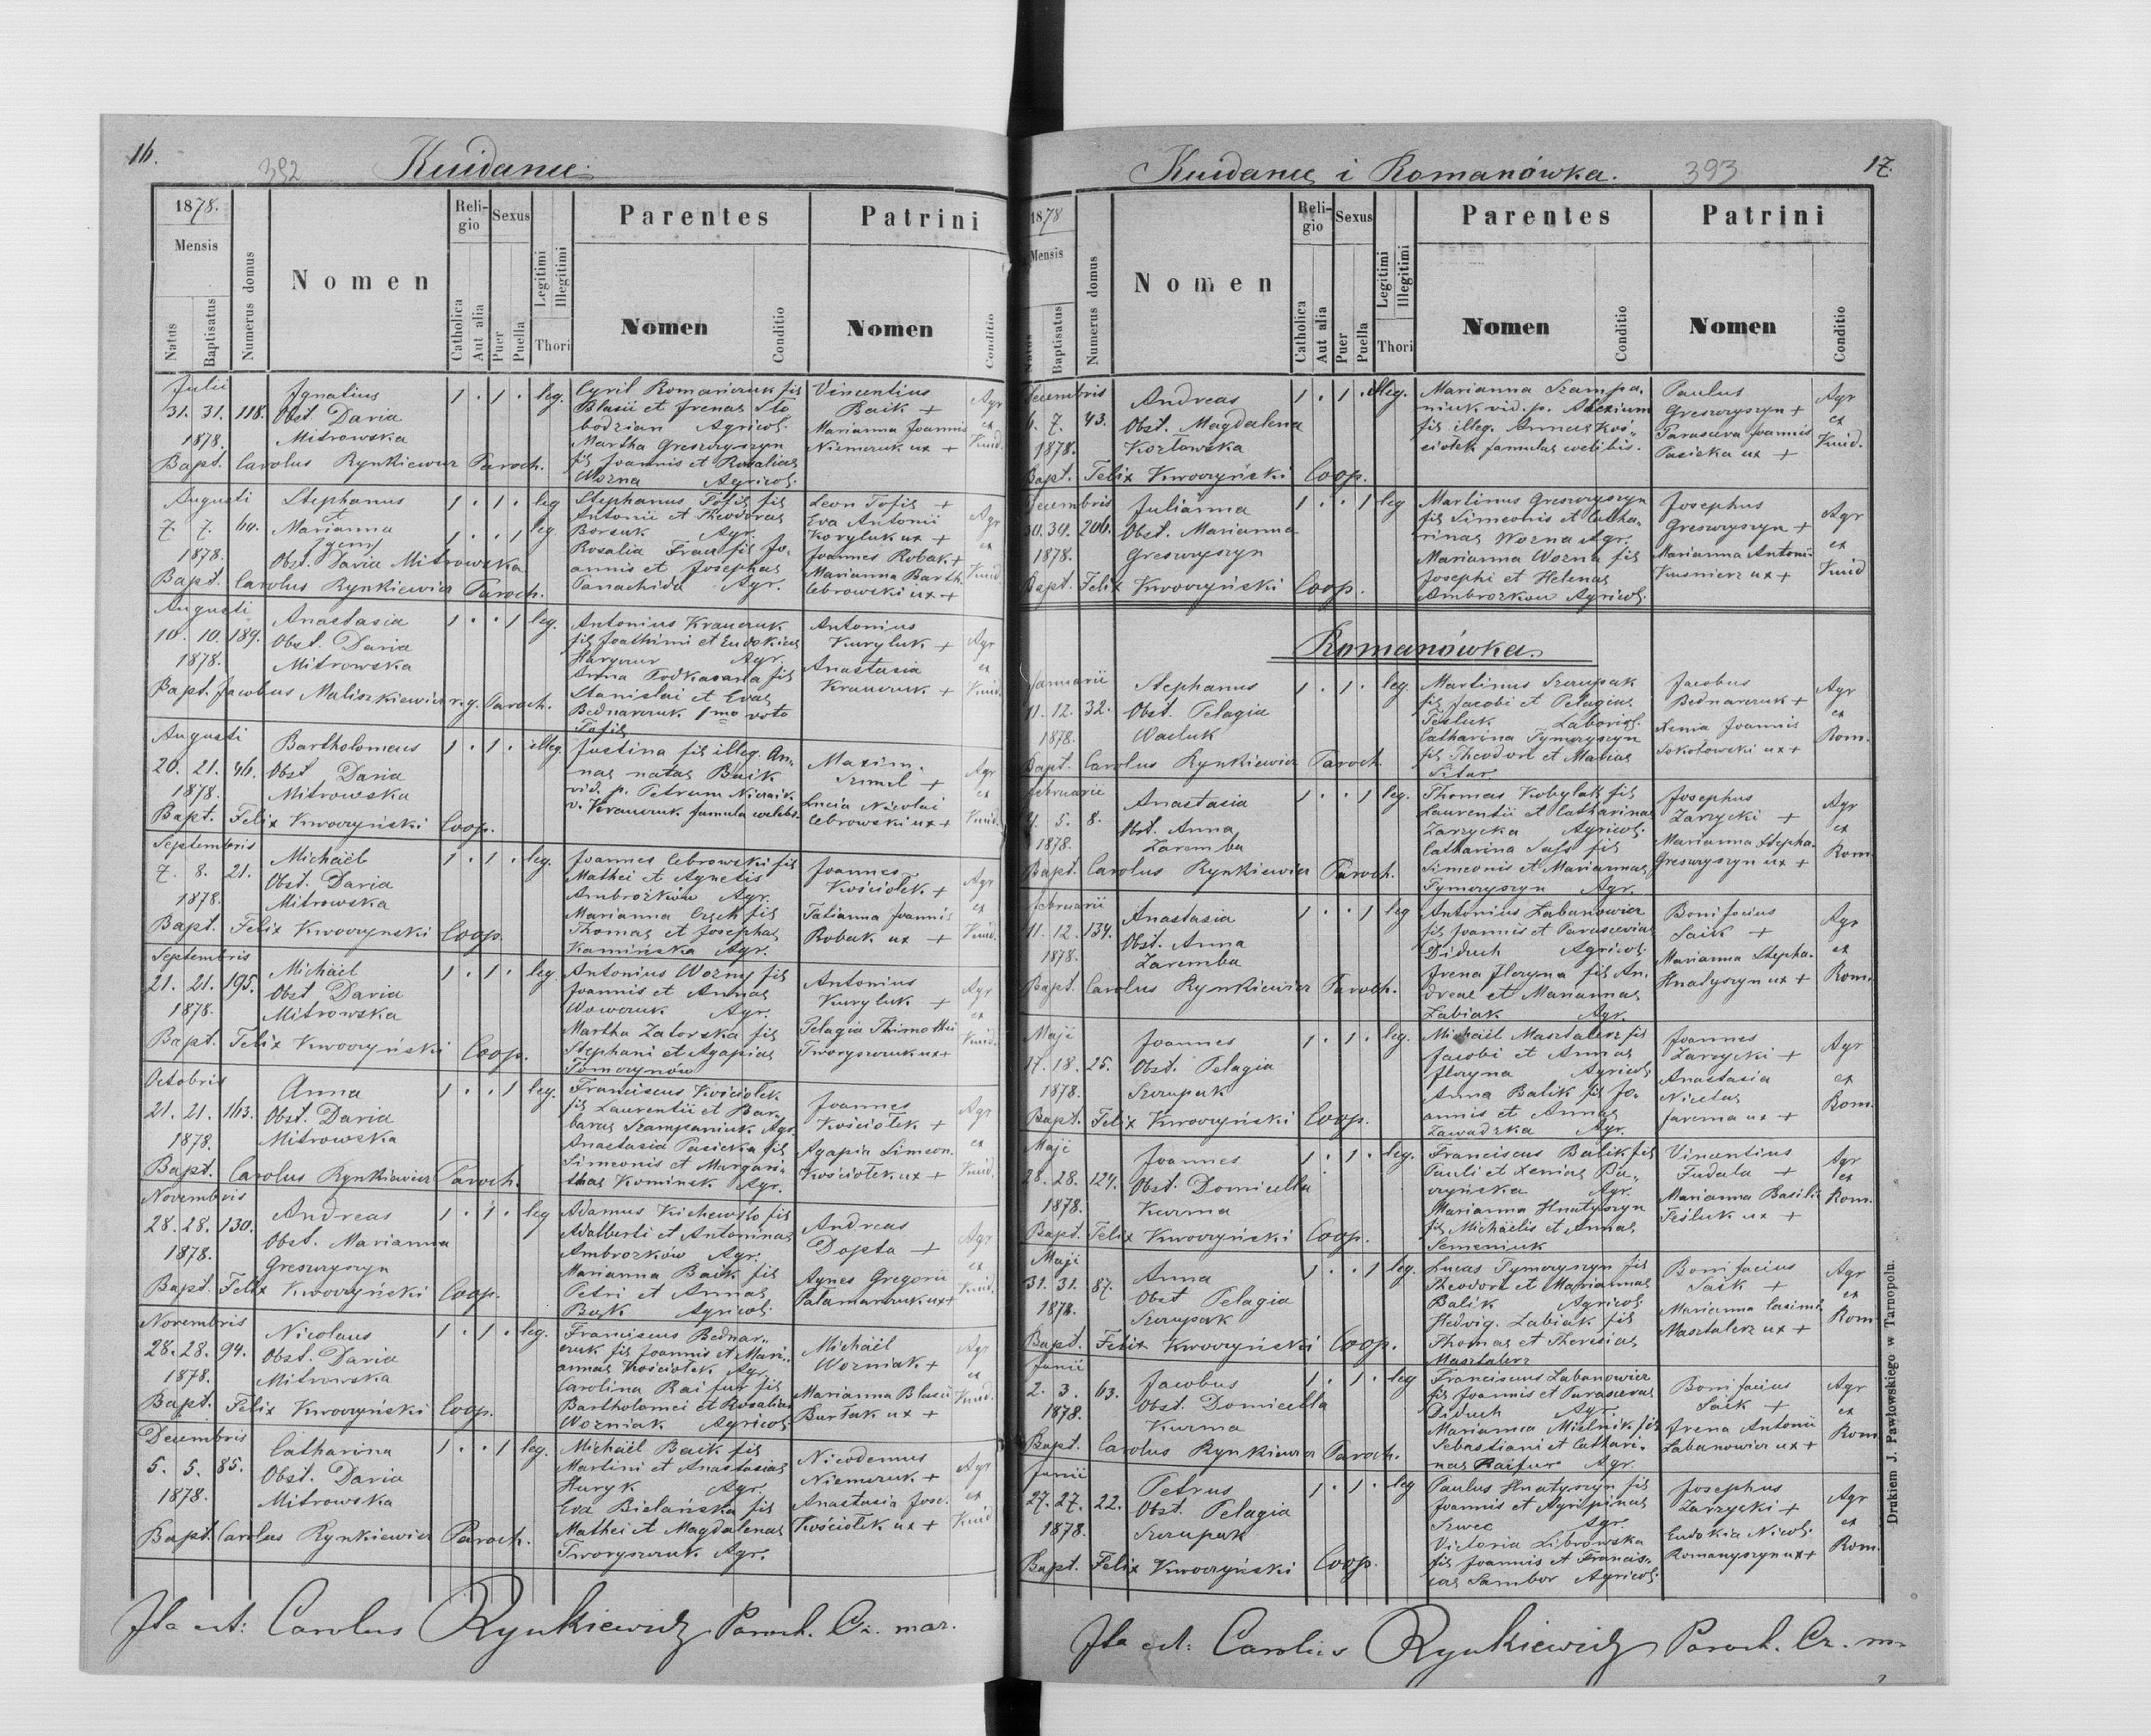 16.
392
Kuidance
1878.
Mensis
Natus
Baptisatus
Numerus domus
Nomen
Religio
Catholica
Aut alia
Sexus
Puer
Puella
Legitimi
Illegitimi
Thori
Parentes
Nomen
Conditio
Patrini
Nomen
Conditio
Julii
31. 31. 118.
1878.
Ignatius
Obst. Daria
Mitrowska
1 . 1 . leg.
Cyril Romańczuk fil
Blasii et Irenae Sło
bodzian Agricol.
Martha Greszczyszyn
fil Joannis et Rosaliae
Wozna Agricol.
Vincentius
Baik +
Marianna Joannis
Niemczuk ux +
Agr
ex
Kuid.
Bapt. Carolus Rynkiewicz Paroch.
Augusti
7. 7. 60.
1878.
Stephanus
et
Marianna
gemj
Obst. Daria Mitrowska
1 . 1 . leg
1 . . 1 leg
Stephanus Tofil fil
Antonii et Theodorae
Borsuk Agr.
Rosalia Frau fil Jo-
annis et Josephae
Panachida Agr.
Leon Tofil +
Eva Antonii
Koryluk ux +
Joannes Robak +
Marianna Barth.
Cebrowski ux +
Agr
ex
Kuid.
Bapt. Carolus Rynkiewicz Paroch.
Augusti
10. 10. 189.
1878.
Anastasia
Obst. Daria
Mitrowska
1 . . 1 leg.
Antonius Krawczuk
fil Joachimi et Eudokiae
Agr.
Anna Podkasana fil
Stanislai et Evae
Bednarczuk 1mo voto
Tofil
Antonius
Kuryluk +
Anastasia
Krawczuk +
Agr.
ex
Kuid.
Bapt. Jacobus Maliszkiewicz r.g. Paroch.
Augusti
20. 21. 46.
1878.
Bartholomeus
Obst Daria
Mitrowska
1 . 1 . illeg.
Justina fil illeg. An-
nae natae Baik
vid. p. Petrum
v. Krawczuk famula caelebs.
Maxim.
Szmel +
Lucia Nicolai
Cebrowski ux +
Agr
ex
Kuid.
Bapt. Felix Kwoczyński Coop.
Septembris
7. 8. 21.
1878.
Michaël
Obst. Daria
Mitrowska
1 . 1 . leg.
Joannes Cebrowski fil
Mathei et Agnetis
Ambrożków Agr.
Marianna Czech fil
Thomae et Josephae
Kamińska Agr.
Joannes
Kościołek +
Tatianna Joannis
Robak ux +
Agr
ex
Kuid.
Bapt. Felix Kwoczynski Coop.
Septembris
21. 21. 195.
1878.
Michäel
Obst Daria
Mitrowska
1 . 1 . leg.
Antonius Wozny fil
Joannis et Annae
Wowczuk Agr.
Martha Zatorska fil
Stephani et Agapiae
Tomczynów
Antonius
Kuryluk +
Pelagia Thimothei
Tworyszczuk ux +
Agr
ex
Kuid.
Bapt. Felix Kwoczyński Coop.
Octobris
21. 21. 163.
1878.
Anna
Obst. Daria
Mitrowska
1 . . 1 leg.
Franciscus Kościołek
fil Laurentii et Bar-
barae Szampaniuk Agr.
Anastasia Pasieka fil
Simeonis et Margari-
thae Kominek Agr.
Joannes
Kościołek +
Agapia Simeon.
Kościołek ux +
Agr
ex
Kuid.
Bapt. Carolus Rynkiewicz Paroch.
Novembris
28. 28. 130.
1878.
Andreas
Obst. Marianna
Greszczyszyn
1 . 1 . leg
Adamus fil
Adalberti et Antoninae
Ambrozków Agr.
Marianna Baik fil
Petri et Annae
Bąk Agricol.
Andreas
Dopta +
Agnes Gregorii
Palamarczuk ux +
Agr
ex
Kuid.
Bapt. Felix Kwoczyński Coop.
Novembris
28. 28. 94.
1878.
Nicolaus
Obst. Daria
Mitrowska
1 . 1 . leg.
Franciscus Bednar-
czuk fil Joannis et Mari-
annae Kościołek Agr.
Carolina Raifur fil
Bartholomei et Rosaliae
Wozniak Agricol.
Michäel
Wozniak +
Marianna Blasii
Burłak ux +
Agr
ex
Kuid.
Bapt. Felix Kwoczyński Coop.
Decembris
5. 5. 85.
1878.
Catharina
Obst. Daria
Mitrowska
1 . . 1 leg.
Michäel Baik fil
Martini et Anastasiae
Huryk Agr.
Eva Bielańska fil
Mathei et Magdalenae
Tworyszczuk Agr.
Nicodemus
Niemczuk +
Anastasia Jose.
Kościołek ux +
Agr
ex
Kuid
Bapt. Carolus Rynkiewicz Paroch.
Ita est: Carolus Rynkiewicz Paroch. Cz. mar.
Kuidance i Romanówka.
393
17.
1878
Mensis
Natus
Baptisatus
Numerus domus
Nomen
Religio
Catholica
Aut alia
Sexus
Puer
Puella
Legitimi
Illegitimi
Thori
Parentes
Nomen
Conditio
Patrini
Nomen
Conditio
Decembris
6. 7. 43.
1878.
Andreas
Obst. Magdalena
Kozłowska
1 . 1 . illeg.
Marianna Szampa-
niuk vid. p. Alexium
fil illeg. Annae Koś-
ciołek famulae caelibis.
Paulus
Greszczyszyn +
Parasceva Joannis
Pasieka ux +
Agr
ex
Kuid.
Bapt. Felix Kwoczyński Coop.
Decembris
30. 30. 206.
1878.
Julianna
Obst. Marianna
Greszczyszyn
1 . . 1 leg
Martinus Greszczyszyn
fil Simeonis et Catha-
rinae Wozna Agr.
Marianna Wozna fil
Josephi et Helenae
Ambrozkow Agricol.
Josephus
Greszczyszyn +
Marianna Antonii
Kusnierz ux +
Agr
ex
Kuid
Bapt. Felix Kwoczyński Coop.
Romanówka.
Januarii
11. 12. 32.
1878.
Stephanus
Obst. Pelagia
Wasluk
1 . 1 . leg.
Martinus Szczupak
fil Jacobi et Pelagiae
Tesluk Laborios.
Catharina Tymczyszyn
fil Theodori et Mariae
Sitar
Jacobus
Bednarczuk +
Xenia Joannis
Sokołowski ux +
Agr
ex
Rom.
Bapt. Carolus Rynkiewicz Paroch.
Februarii
4. 5. 8.
1878.
Anastasia
Obst. Anna
Zaremba
1 . . 1 leg.
Thomas Kobylak fil
Laurentii et Catharinae
Zarzycka Agricol.
Catharina Sass fil
Simeonis et Mariannae
Tymczyszyn Agr.
Josephus
Zarzycki +
Marianna Stepha-
Greszczyszyn ux +
Agr
ex
Rom
Bapt. Carolus Rynkiewicz Paroch.
Februarii
11. 12. 134.
1878.
Anastasia
Obst. Anna
Zaremba
1 . . 1 leg
Antonius Łabanowicz
fil Joannis et Parasceviae
Diduch Agricol.
Irena Horyna fil An-
dreae et Mariannae
Labiak Agr.
Bonifacius
Saik +
Marianna Stepha.
Hnatyszyn ux +
Agr
ex
Rom.
Bapt. Carolus Rynkiewicz Paroch.
Maji
17. 18. 25.
1878.
Joannes
Obst. Pelagia
Szczupak
1 . 1 . leg.
Michäel Masztalerz fil
Jacobi et Annae
Horyna Agricol
Anna Balik fil Jo-
annis et Annae
Zawadzka Agr.
Joannes
Zarzycki +
Anastasia
Nicetae
Jarema ux +
Agr
ex
Rom.
Bapt. Felix Kwoczyński Coop.
Maji
28. 28. 124.
1878.
Joannes
Obst. Domicella
Kurma
1 . 1 . leg.
Franciscus Balik fil
Pauli et Xeniae Bu-
czyńska Agr.
Marianna Hnatyszyn
fil Michäelis et Annae
Semeniuk
Vincentius
Fudala +
Marianna Basilii
Tesluk ux +
Agr
ex
Rom.
Bapt. Felix Kwoczyński Coop.
Maji
31. 31. 87.
1878.
Anna
Obst Pelagia
Szczupak
1 . . 1 leg.
Lucas Tymczyszyn fil
Theodori et Mariannae
Balik Agricol.
Hedvig. Labiak fil
Thomae et Theresiae
Masztalerz
Bonifacius
Saik +
Marianna Casimi.
Masztalerz ux +
Agr
ex
Rom
Bapt. Felix Kwoczyński Coop.
Junii
2. 3. 63.
1878.
Jacobus
Obst. Domicella
Kurma
1 . 1 . leg
Franciscus Łabanowicz
fil Joannis et Parascevae
Diduch Agr.
Marianna Mielnik fil
Sebastiani et Cathari-
nae Raifur Agr.
Bonifacius
Saik +
Irena Antonii
Łabanowicz ux +
Agr
ex
Rom
Bapt. Carolus Rynkiewicz Paroch.
Junii
27. 27. 22.
1878.
Petrus
Obst. Pelagia
Szczupak
1 . 1 . leg
Paulus Hnatyszyn fil
Joannis et Agripinae
Szwec Agr.
Victoria Librowska
fil Joannis et Francis-
cae Sambor Agricol.
Josephus
Zarzycki +
Eudokia Nicol.
Romanyszyn ux +
Agr
ex
Rom.
Bapt. Felix Kwoczyński Coop.
Ita est: Carolus Rynkiewicz Paroch. Cz. m
Drukiem J. Pawłowskiego w Tarnopolu.